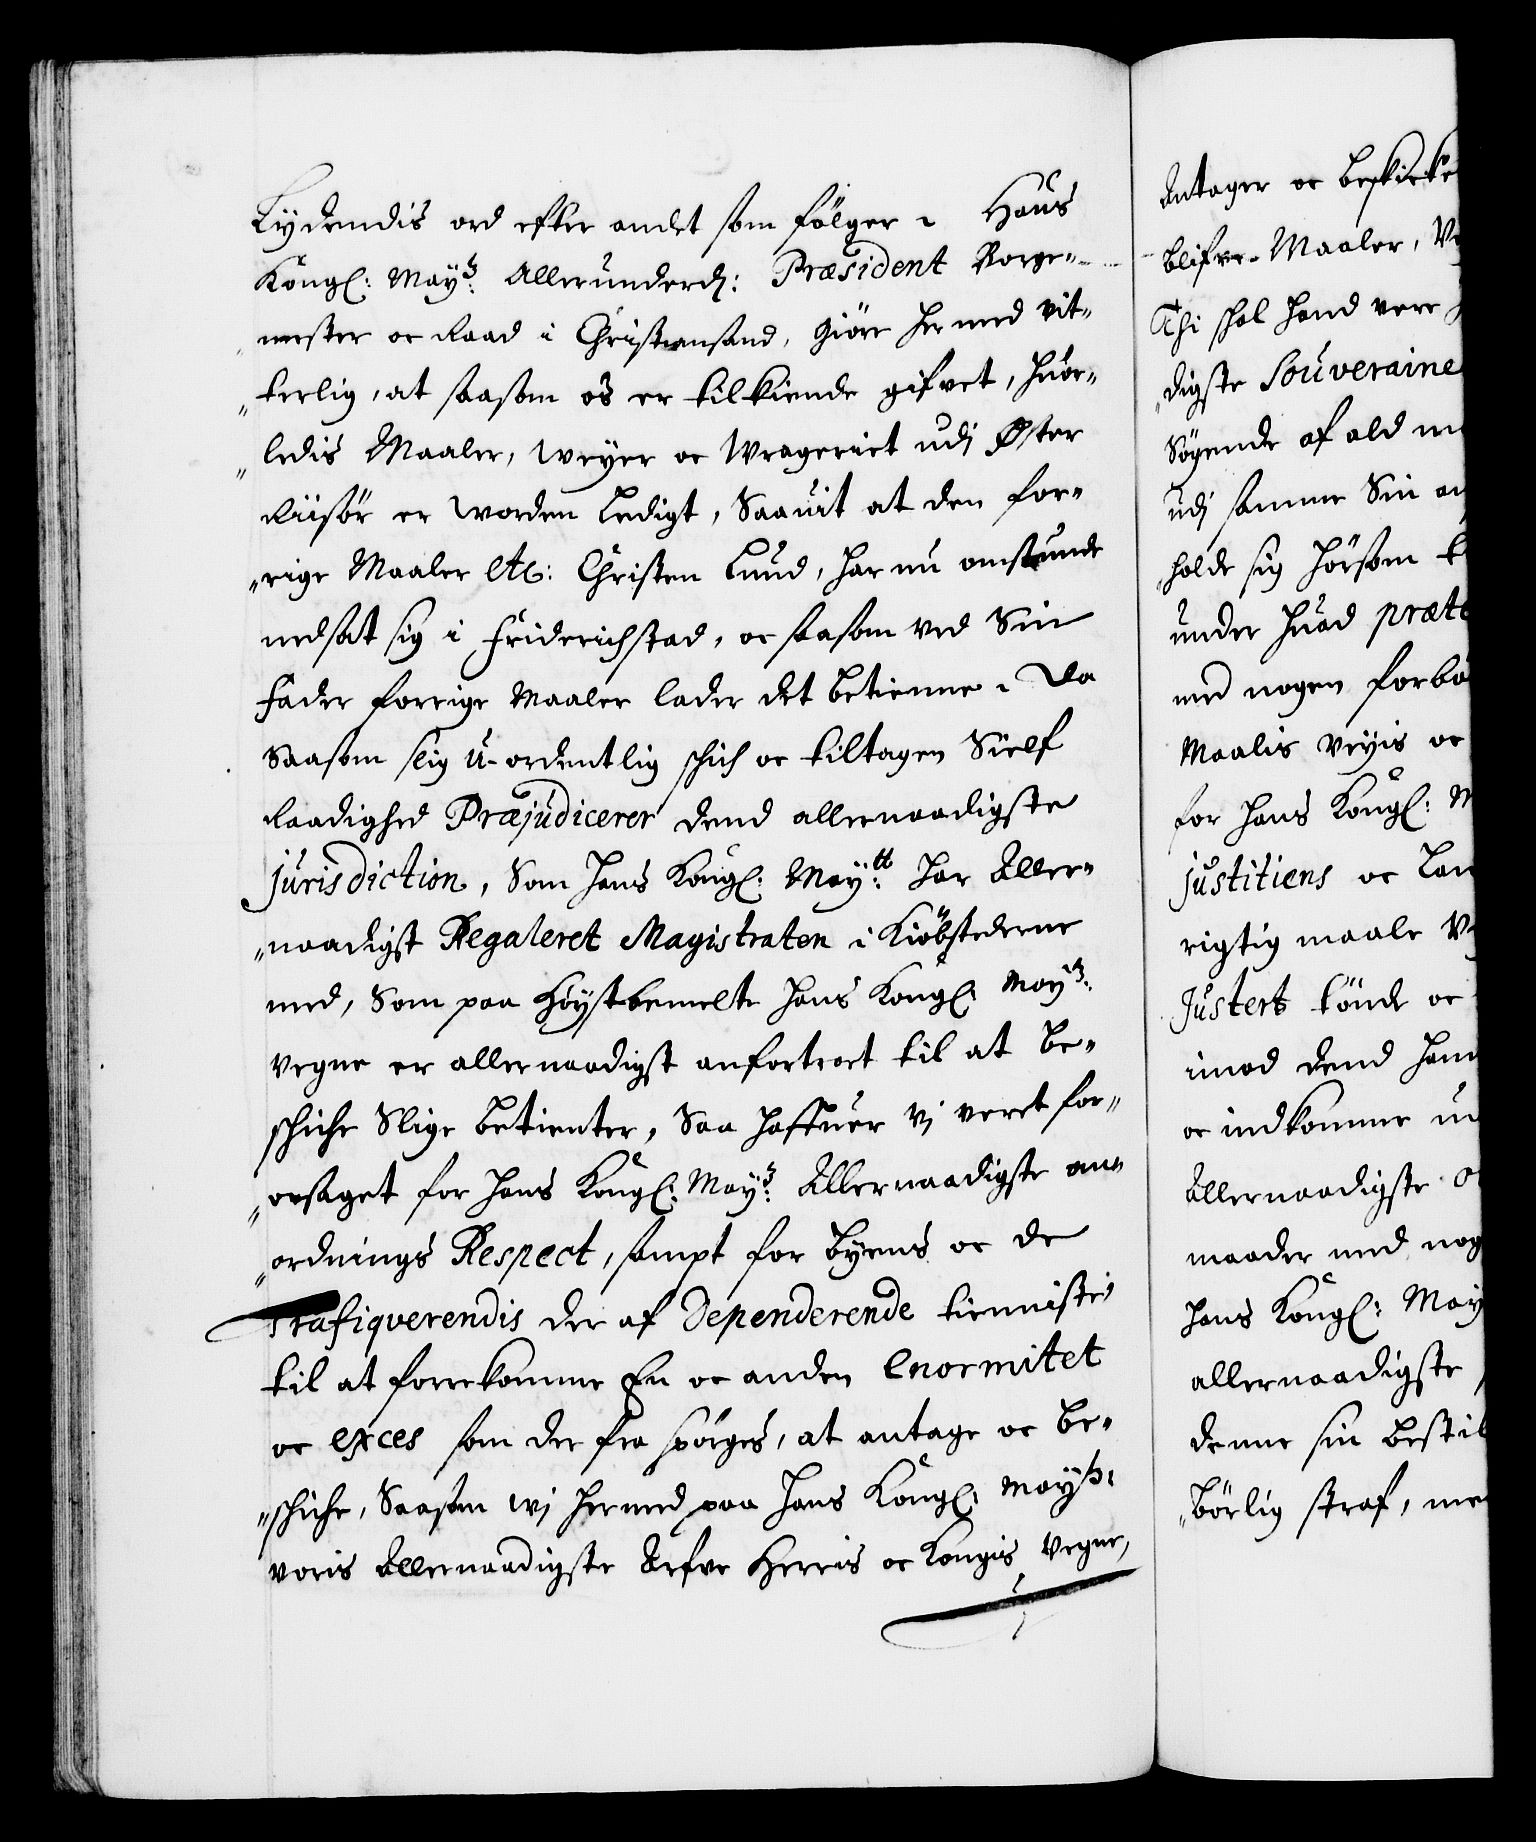 Lydendis ord efter andet som fölger, Hans
Kongl: May:ts Allerunderd: Præsident Borge-
mester oc Raad i Christiansand, Giöre her med vit-
terlig, at saasom os er tilkiende gifvet, huor-
ledis Maaler, weyer oc Wrageriet udj Øster
Riisör er worden Ledigt, Saauit at den for-
rige Maaler etc: Christen Lund, har nu omstunde
nedsat sig i Friderichstad, oc saasom ved Sin
Fader forrige Maaler lader det betienne. Da
Saasom slig u-ordentlig schich oc tiltagen Sielf
Raadighed Præjudicerer dend allernaadigste
jurisdiction, Som hans Kongl: May:tt har Aller-
naadigst Regaleret Magistraten i Kiöbstederne
med, Som paa Höystbemelte hans Kongl: May:ts
vegne er allernaadigst anfortroet til at be-
schiche Slige betienter, Saa haffuer vj veret for-
orsaget for hans Kongl: May:ts Allernaadigste an-
ordnings Respect, sampt for Byens oc de
Trafiqverendis der af Dependerende tienniste
til at forrekomme En oc anden Enormitet
oc exces som der fra spörges, at antage oc be-
schiche, Saasom wj hermed paa hans Kongl: May:ts
voris Allernaadigste Arfve Herris oc Kongis vegne,
Antager oc beskicke
blifve Maaler, Ve
Thi skal hand vere
digste Souveraine
Sögende af ald
udj samme Sin
holde sig hörsom
under huad præte
med nogen forbo
Maalis veyis oc
for hans Kongl: M
justitiens oc Lan
rigtig maale V
Justert tönde oc
imod dend hand
oc indkomme
Allernaadigste
maader med nog
hans Kongl: May
allernaadigste
denne sin bestil
börlig straf, me